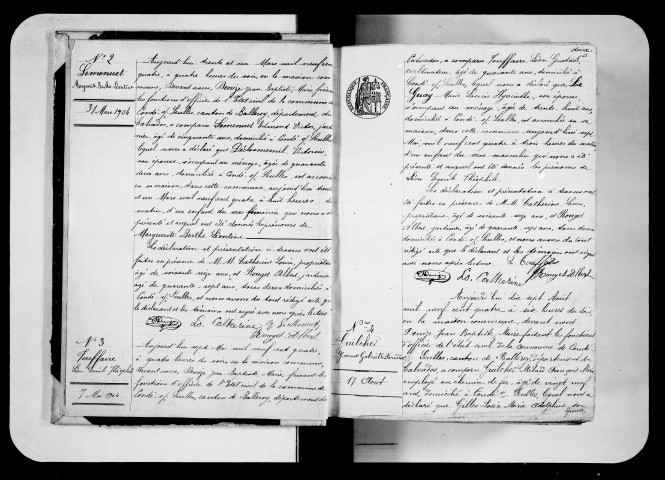 N° 2
Lemenuet
Marguerite Berthe Léontine
31 Mars 1904
Aujourd'hui trente et un Mars mil neuf cent
quatre, à quatre heures du soir, en la maison com
mune, Devant nous, Denize Jean Baptiste, Maire
les fonctions d'officier de l'état civil de la commune de
Condé s/ Seulles canton de Balleroy, département du
Calvados a comparu Lemenuet Edmond Victor, jar
nier, âgé de cinquante ans, domicilié à Condé s/ Seulles
lequel nous a déclaré que
son épouse, s'occupant au ménage, âgée de quarante
deux ans, domiciliée à Condé s/ Seulles, est accouchée
en sa maison, dans cette commune, aujourd'hui trente
et un Mars mil neuf cent quatre à huit heures du
matin, d'un enfant du sexe féminin qui nous a été
présenté et auquel ont été donnés les prénoms de
Marguerite Berthe Léontine.
Les déclaration et présentation ci dessus ont été
faites en présence de M. M. Catherine Louis, propriétaire
âgé de soixante seize ans, et Rouget Albert, jardinier
âgé de quarante sept ans, tous deux domiciliés à
Condé s/ Seulles, et nous avons du tout rédigé acte que
le déclarant et les témoins ont signé avec nous après lecture
Ls. Catherine E. Lemenuet
Rouget Albert
N° 3
Touffaire
Léon Emile Théophile
7 Mai 1904
Aujourd'hui sept Mai mil neuf cent quatre,
à quatre heures du soir, en la maison commune,
Devant nous, Denize Jean Baptiste, Maire, faisant les
fonctions d'officier de l'Etat civil de la commune de
Condé s/ Seulles, canton de Balleroy, département du
deux
Calvados, a comparu Touffaire Léon Gustave,
cultivateur, âgé de quarante ans, domicilié à
Condé s/ Seulles, lequel nous a déclaré que Le
Guay Marie Louise, son épouse
s'occupant au ménage, âgée de trente huit ans
domiciliée à Condé s/ Seulles, est accouchée en sa
maison, dans cette commune, aujourd'hui sept
Mai, mil neuf cent quatre à trois heures du matin
d'un enfant du sexe masculin qui nous a été
présenté et auquel ont été donnés les prénoms de
Léon Emile Théophile.
Les déclaration et présentation ci dessus ont
été faites en présence de M. M. Catherine Louis,
propriétaire, âgé de soixante seize ans, et Rouget
Albert, jardinier, âgé de quarante sept ans, tous deux
domiciliés à Condé s/ Seulles, et nous avons du tout
rédigé acte que le déclarant et les témoins ont signé
avec nous après lecture.
Ls. Catherine Rouget Albert
N° 4
Guilchet
17 Août
Aujourd'hui dix sept Août
mil neuf cent quatre à six heures du soir,
en la maison commune, devant nous
Denize Jean Baptiste Maire faisant les fonctions
d'officier de l'état civil de la Commune de Condé
s/ Seulles, canton de Balleroy, département du
Calvados, a comparu Guilchet François Marie
employé au chemin de fer, âgé de vingt neuf
ans, domicilié à Condé s/ Seulles, lequel nous a
déclaré que Gilles Louise Marie Adolphine, son